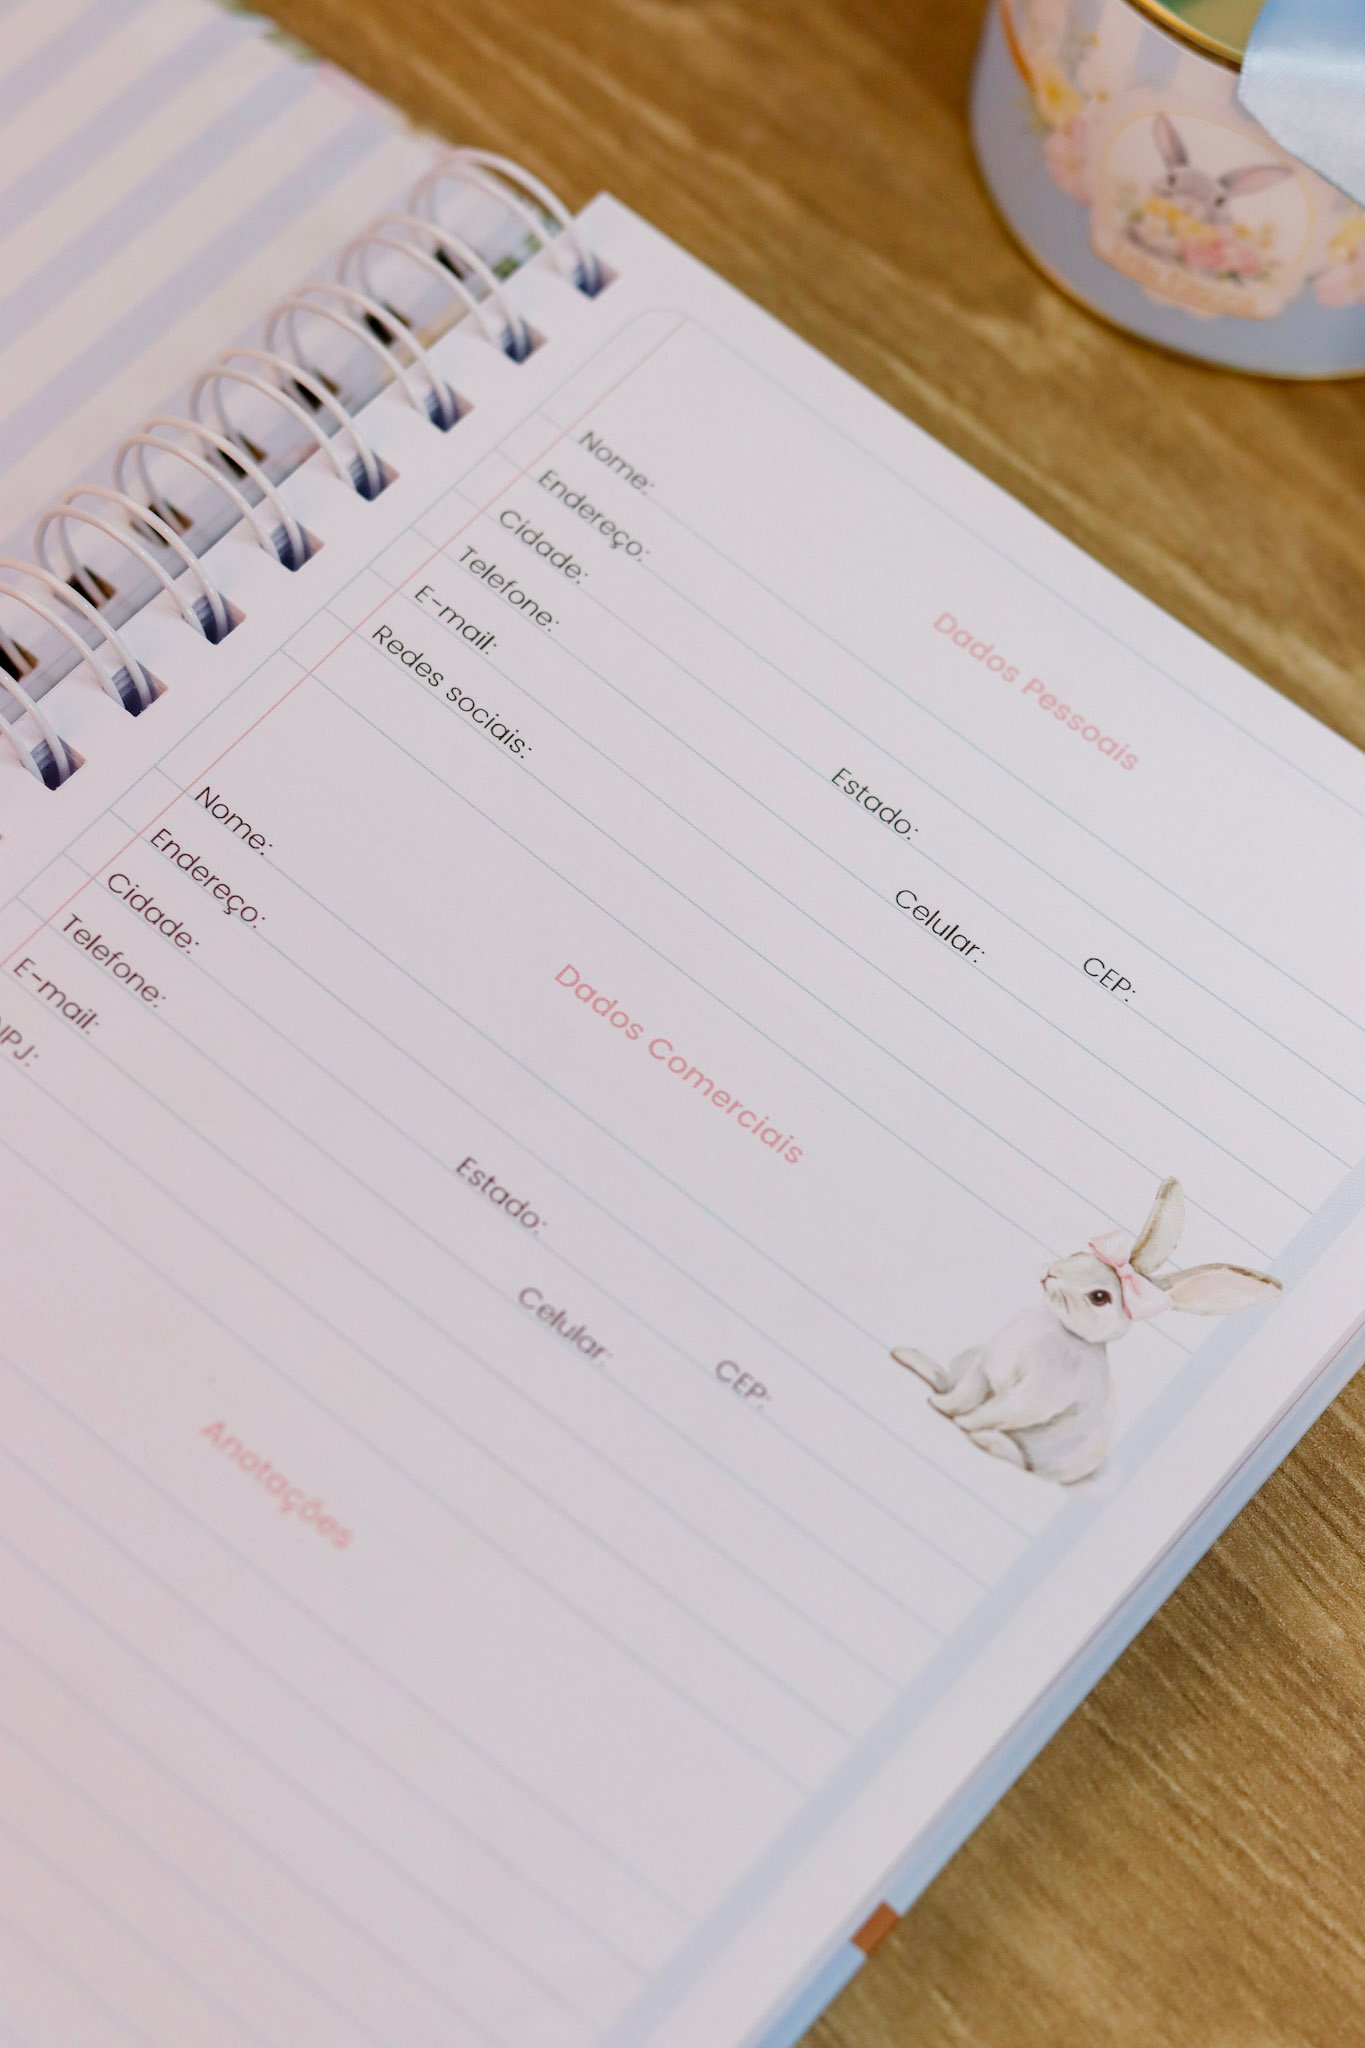 Dados Pessoais
Nome:
Endereço:
Cidade: Estado: CEP:
Telefone: Celular:
E-mail:
Redes sociais:
Dados Comerciais
Nome:
Endereço:
Cidade: Estado: CEP:
Telefone: Celular:
E-mail:
NPJ:
Anotações